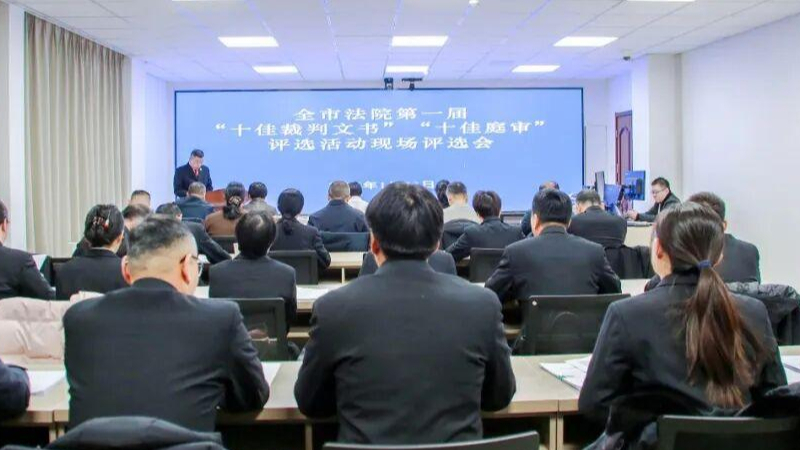 全市法院第一届
“十佳裁判文书” “十佳庭审”
评选活动现场评选会